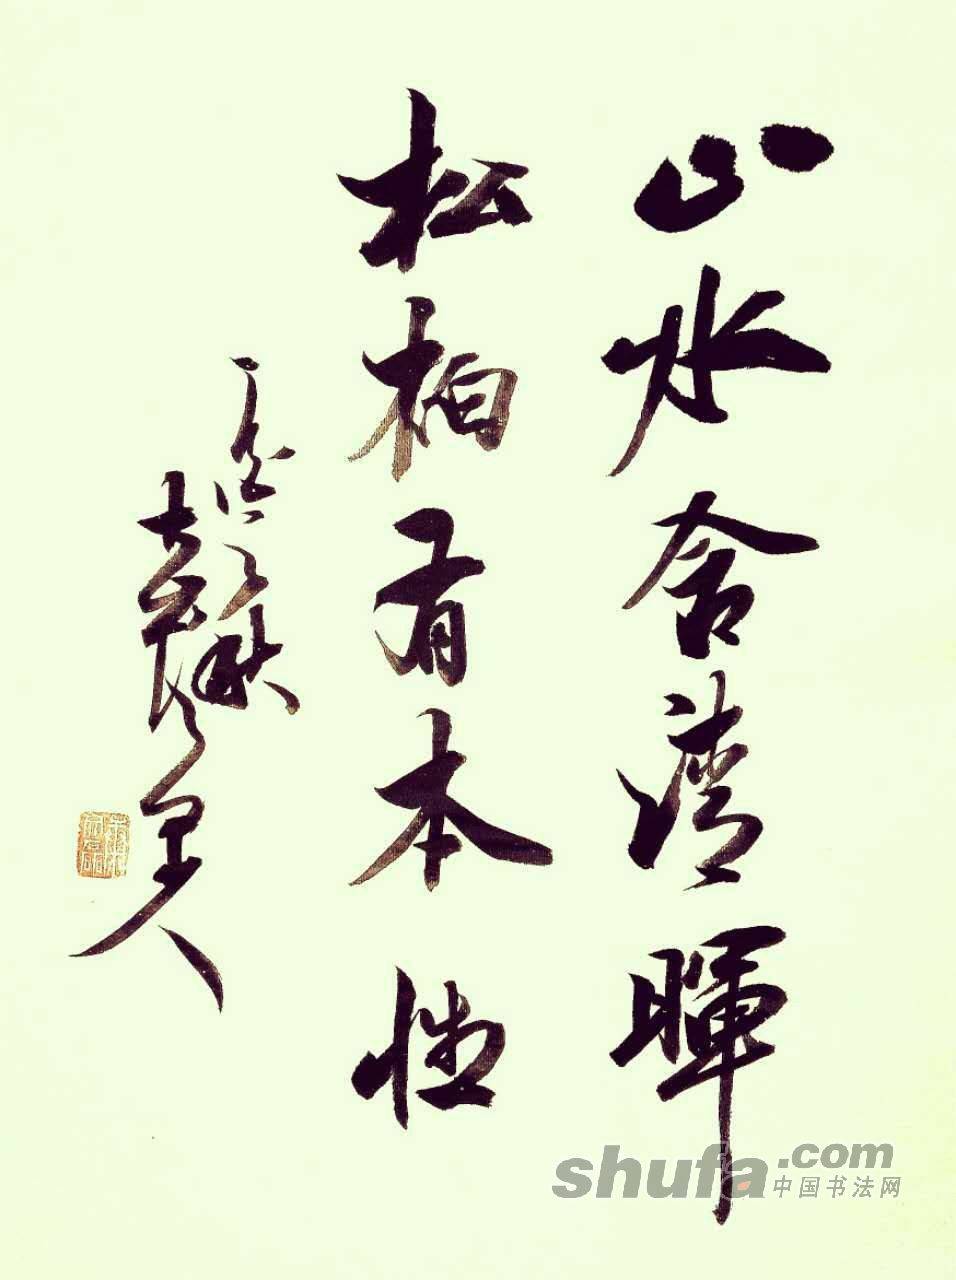 山水含清暉
松柏有本性
之秋
人
shufa.com
中国书法网